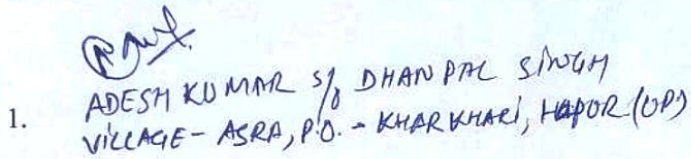 1. ADESH KUMAR S/o DHANPAL SINGH
VILLAGE - ASRA, P.O. - KHARKHARI, HAPUR (UP)